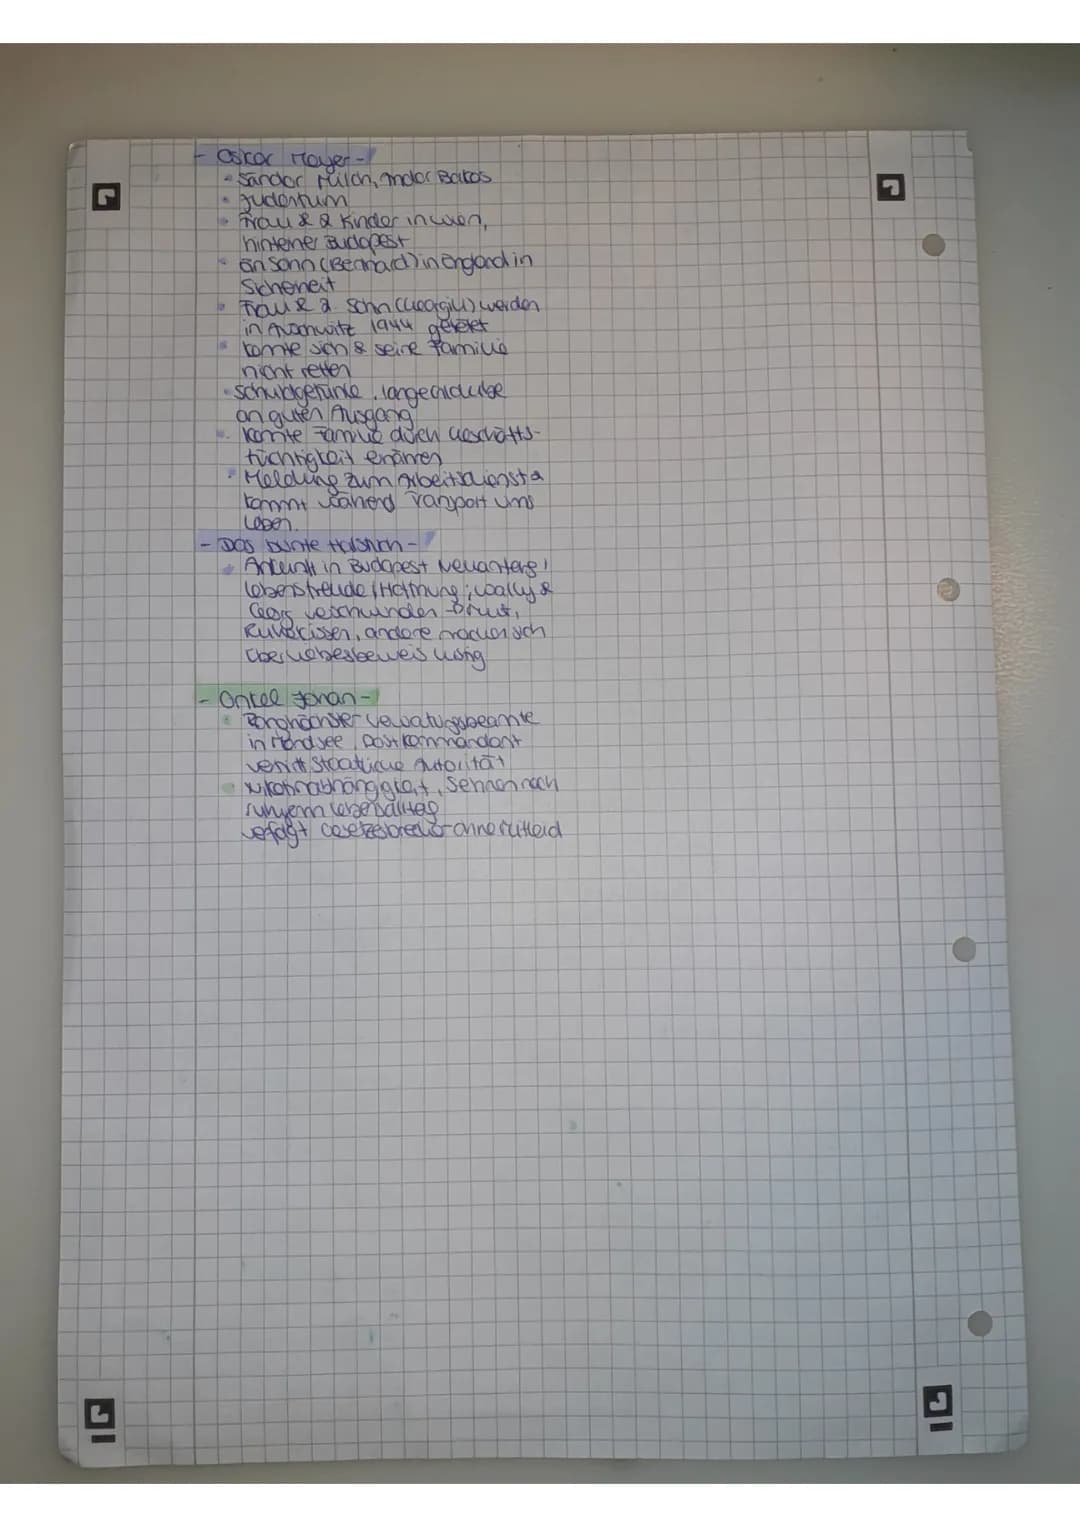 - Oskar Meyer -
• Sándor Milch, Andor Bakos
• Judentum
• Frau & 2 Kinder in Wien,
hinterher Budapest
• ein Sohn (Bernhard) in England in
Sicherheit
• Frau & 2. Sohn (Georgili) werden
in Auschwitz 1944 getötet
• konnte sich & seine Familie
nicht retten
• Schuldgefühle, lange
an guten Ausgang
• konnte Familie durch Geschäfts-
tüchtigkeit ernähren
• Meldung zum Arbeitsdienst &
kommt während Tranport ums
Leben.
- Das bunte Halstuch -
• Ankunft in Budapest Neuanfang,
Lebensfreude, Hoffnung; Wally &
Georg verschwinden
andere machen sich
lustig
- Onkel Johan -
• Ranghöchster Verwaltungsbeamte
in Mondsee, Postkommandant
vertritt Staatliche Autorität
• Nikotinabhängigkeit, Sehnen nach
ruhigem Lebensalltag
verfolgt Gesetzesbrecher ohne Mitleid